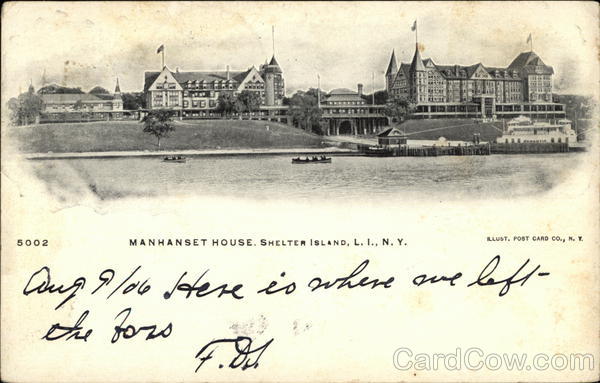 5002 MANHANSET HOUSE. SHELTER ISLAND, L. I., N. Y. ILLUST. POST CARD CO., N. Y.
Aug 9/06 Here is where we left
the
F.D.S.
CardCow.com